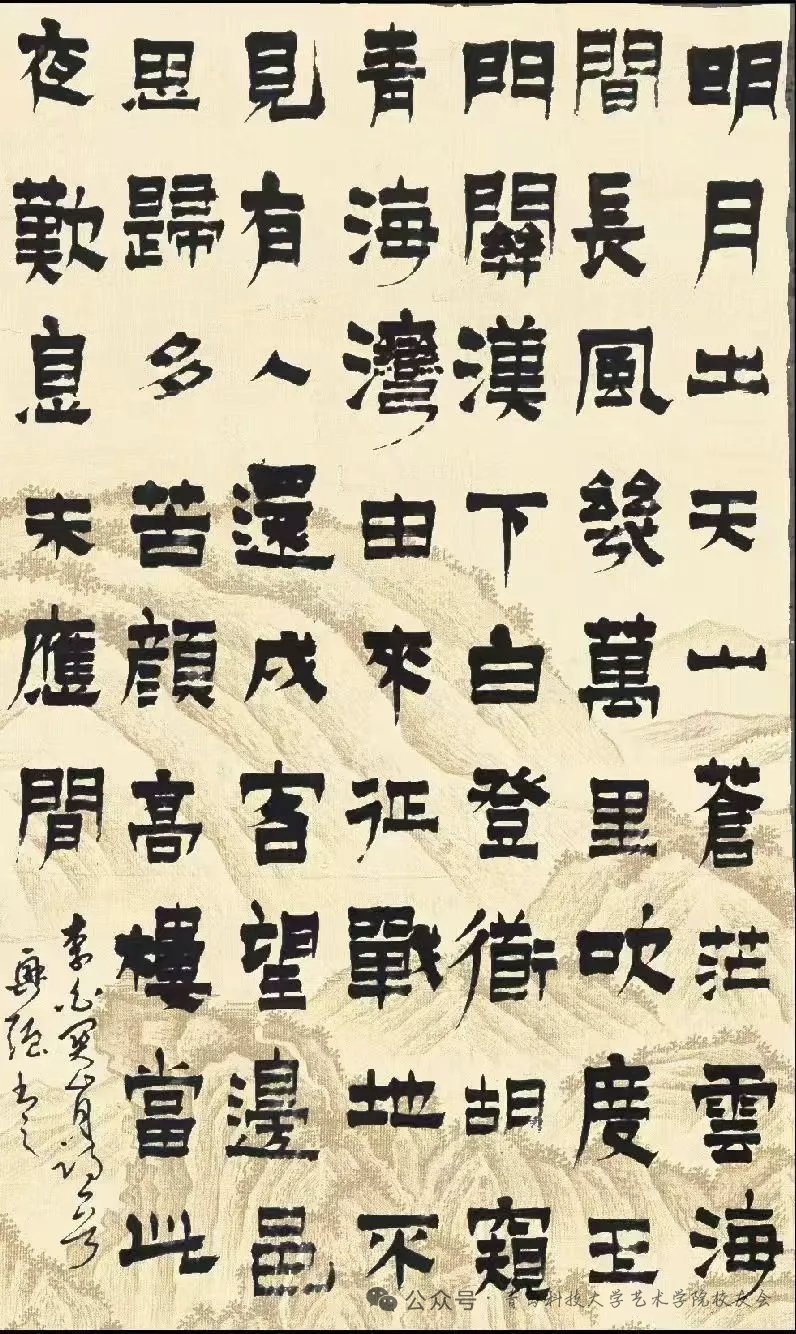 明月出天山蒼茫雲海
間長風幾萬里吹度玉
門關漢下白登衟胡窺
青海灣由來征戰地不
見有人還戍客望邊邑
思歸多苦顏高樓當此
夜歎息未應間
李白關山月詩一首
興強書之
公众号 · 青岛科技大学艺术学院校友会